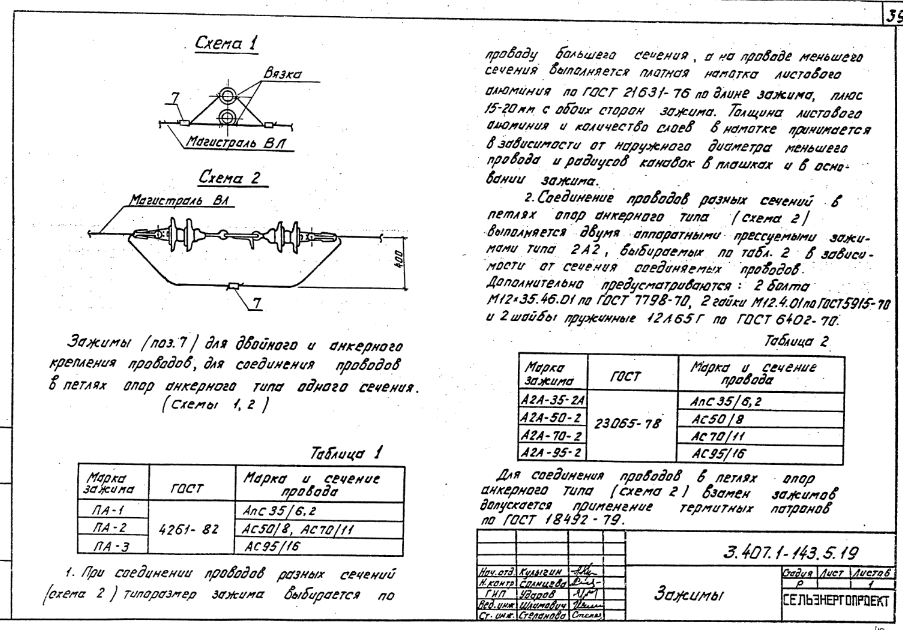 39
Схема 1
Вязка
7
Магистраль ВЛ
Схема 2
Магистраль ВЛ
400
7
Зажимы (поз.7) для двойного и анкерного
крепления проводов, для соединения проводов
в петлях опор анкерного типа одного сечения.
(Схемы 1, 2)
Таблица 1
Марка зажима ГОСТ Марка и сечение провода
ПА-1 4261-82 АпС 35/6,2
ПА-2 АС50/8, АС70/11
ПА-3 АС95/16
1. При соединении проводов разных сечений
(схема 2) типоразмер зажима выбирается по
проводу большего сечения, а на проводе меньшего
сечения выполняется плотная намотка листового
алюминия по ГОСТ 21631-76 по длине зажима, плюс
15-20мм с обоих сторон зажима. Толщина листового
алюминия и количество слоев в намотке принимается
в зависимости от наружного диаметра меньшего
провода и радиусов канавок в плашках и в осно-
вании зажима.
2. Соединение проводов разных сечений в
петлях опор анкерного типа (схема 2)
выполняется двумя аппаратными прессуемыми зажи-
мами типа 2А2, выбираемых по табл. 2 в зависи-
мости от сечения соединяемых проводов.
Дополнительно предусматриваются: 2 болта
М12×35.46.01 по ГОСТ 7798-70, 2 гайки М12.4.01 по ГОСТ 5915-70
и 2 шайбы пружинные 12Л65Г по ГОСТ 6402-70.
Таблица 2
Марка зажима ГОСТ Марка и сечение провода
А2А-35-2А 23065-78 АпС 35/6,2
А2А-50-2 АС50/8
А2А-70-2 АС70/11
А2А-95-2 АС95/16
Для соединения проводов в петлях опор
анкерного типа (схема 2) взамен зажимов
допускается применение термитных патронов
по ГОСТ 18492-79.
3.407.1-143.5.19
Нач.отд. Кулыгин
Н.контр. Солнцева
ГИП Ударов
Вед.инж. Шлимович
Ст.инж. Степанова
Зажимы
Стадия Лист Листов
Р 1
СЕЛЬЭНЕРГОПРОЕКТ